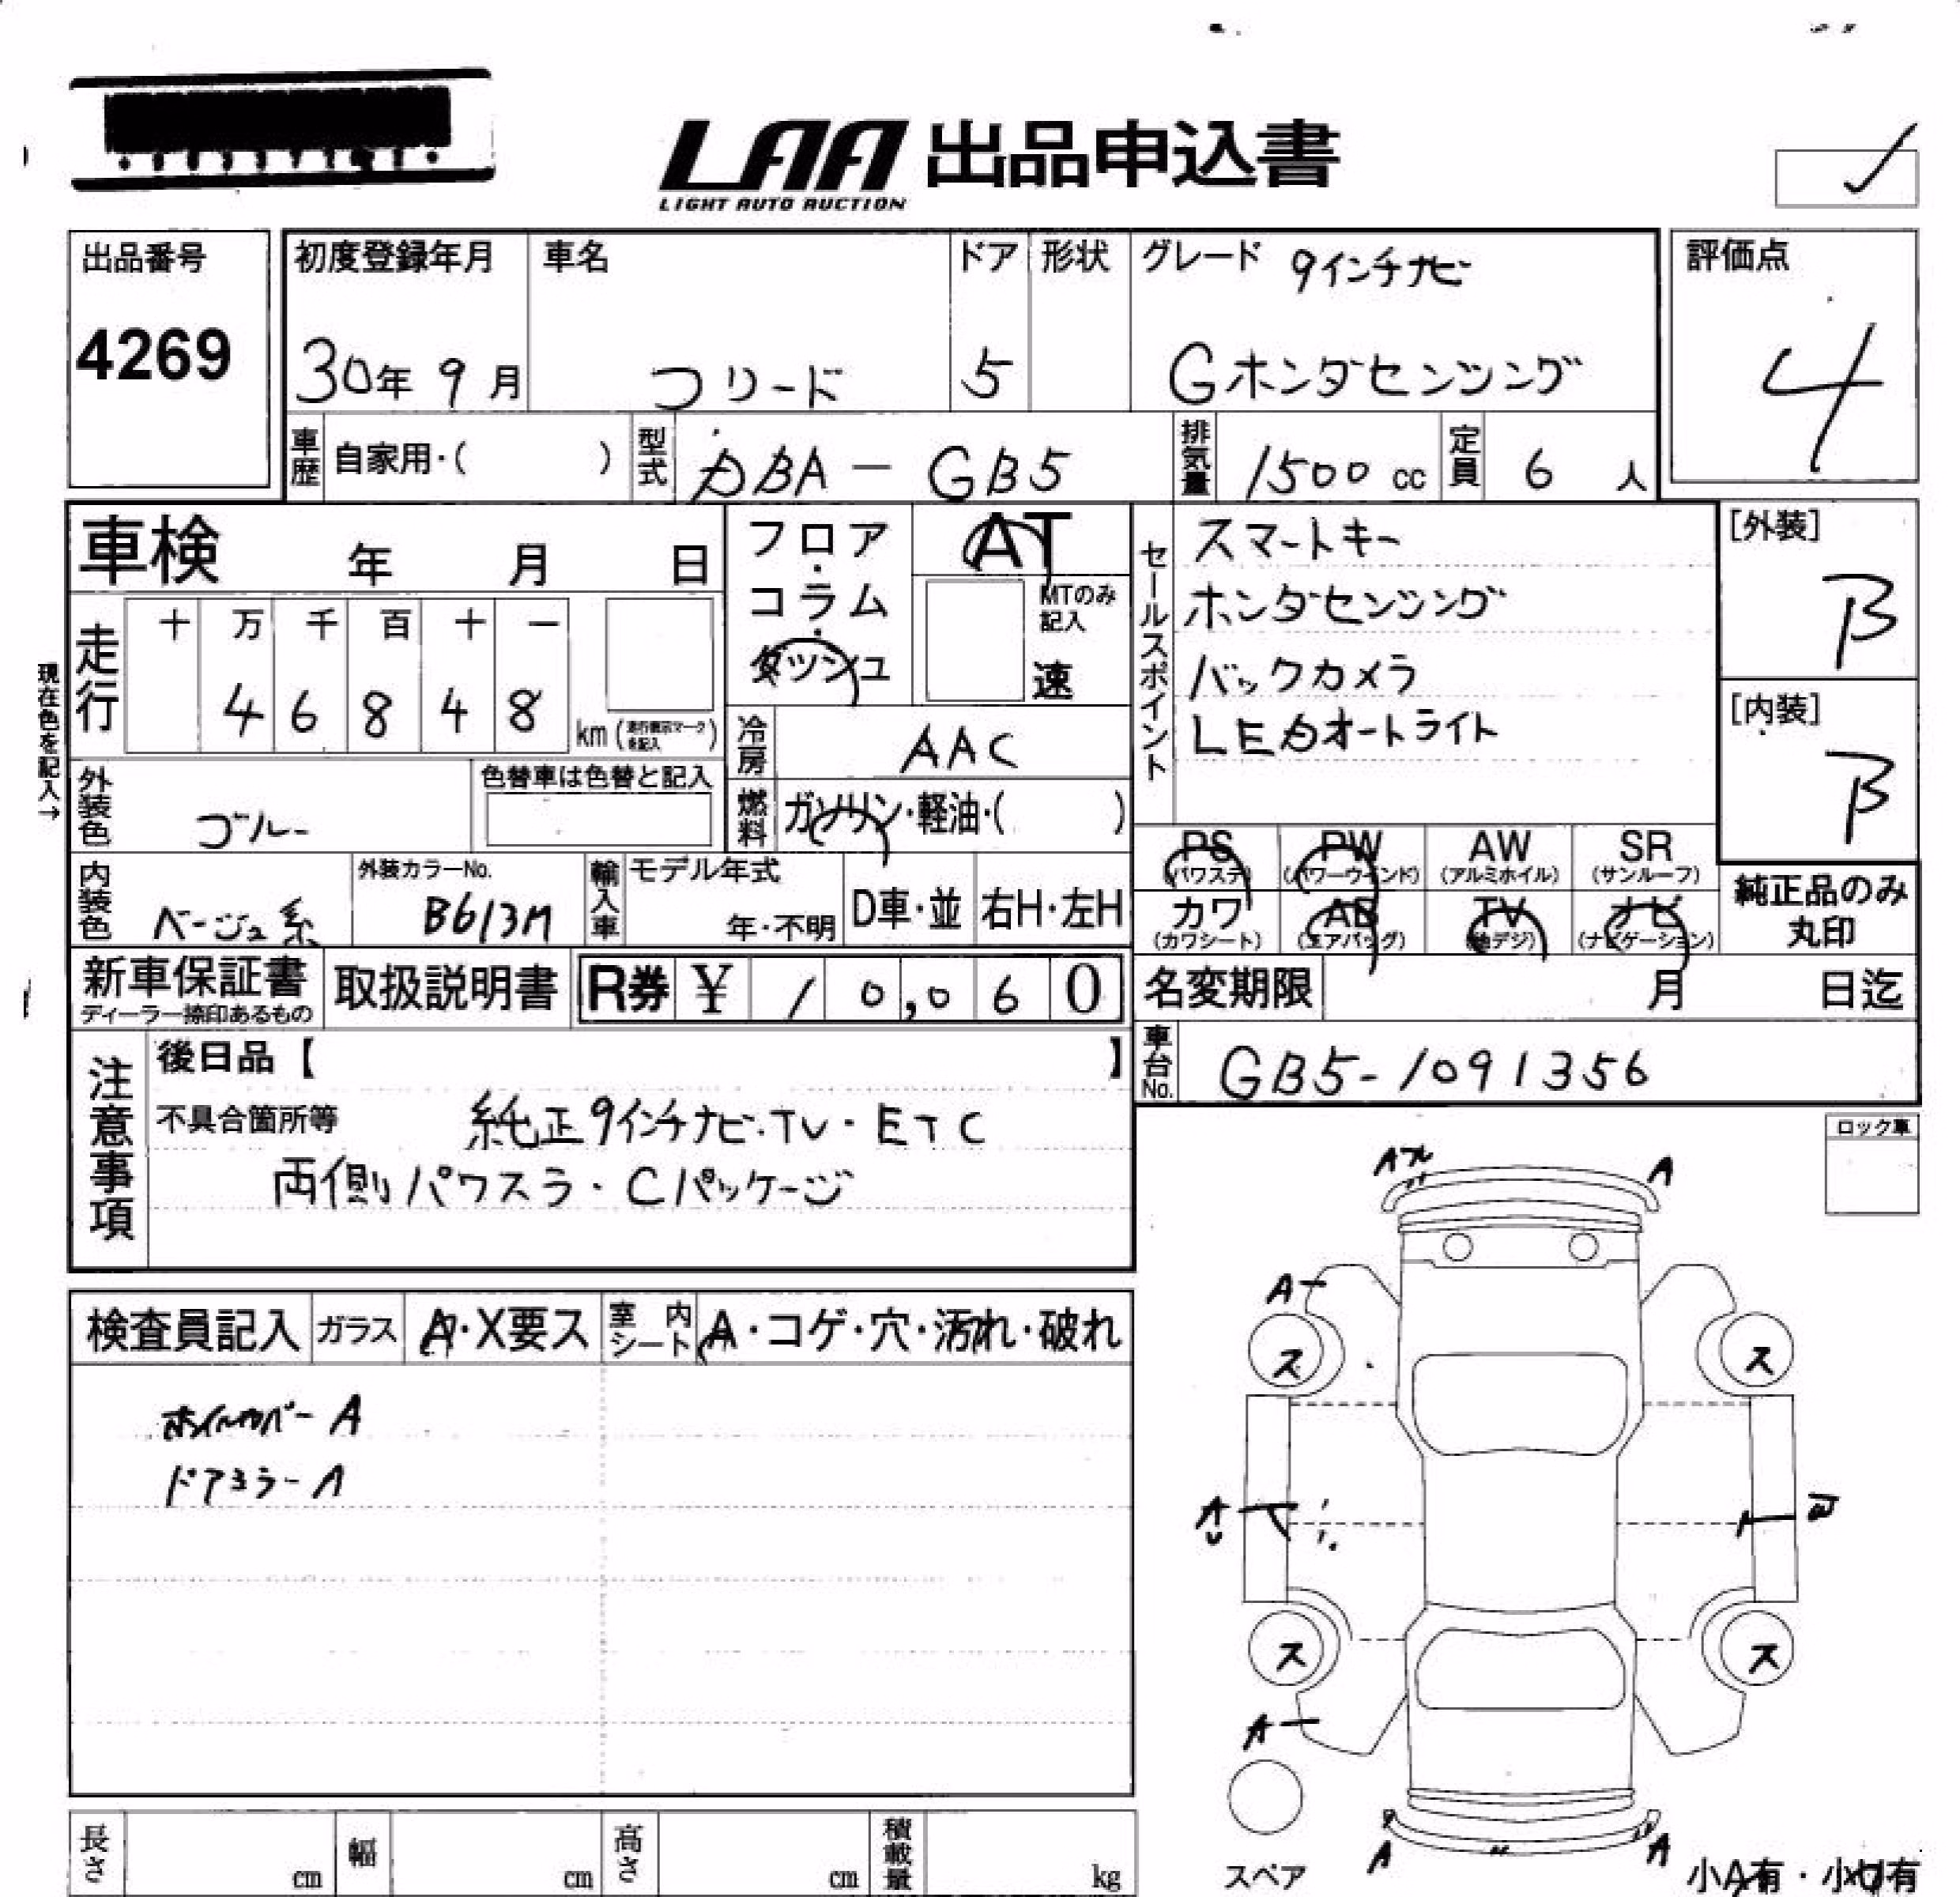 LAA 出品申込書
LIGHT AUTO AUCTION
出品番号
4269
初度登録年月
30年 9月
車名
フリード
ドア
5
形状
グレード 9インチナビ
Gホンダセンシング
評価点
4
車歴 自家用・( )
型式 DBA-GB5
排気量 1500 cc
定員 6 人
車検 年 月 日
フロア・コラム・ダッシュ
AT
MTのみ記入
速
セールスポイント
スマートキー
ホンダセンシング
バックカメラ
LEDオートライト
[外装]
B
[内装]
B
現在色を記入→
走行
十 万 千 百 十 一
4 6 8 4 8 km (走行表示マークを記入)
冷房 AAC
外装色 ブルー
色替車は色替と記入
燃料 ガソリン・軽油・( )
内装色 ベージュ系
外装カラーNo.
B613M
輸入車
モデル年式
年・不明
D車・並
右H・左H
PS (パワステ)
PW (パワーウインド)
AW (アルミホイル)
SR (サンルーフ)
カワ (カワシート)
AB (エアバッグ)
TV (地デジ)
ナビ (ナビゲーション)
純正品のみ
丸印
新車保証書
ディーラー捺印あるもの
取扱説明書
R券 ¥ 10,060
名変期限 月 日迄
車台No. GB5-1091356
注意事項
後日品【 】
不具合箇所等 純正9インチナビ・TV・ETC
両側パワスラ・Cパッケージ
ロック車
検査員記入
ガラス A・X要ス
室内シート A・コゲ・穴・汚れ・破れ
ホイルカバーA
ドアミラーA
A
A
ス
ス
A
ス
ス
A
A
A
スペア
小A有・小U有
長さ cm
幅 cm
高さ cm
積載量 kg